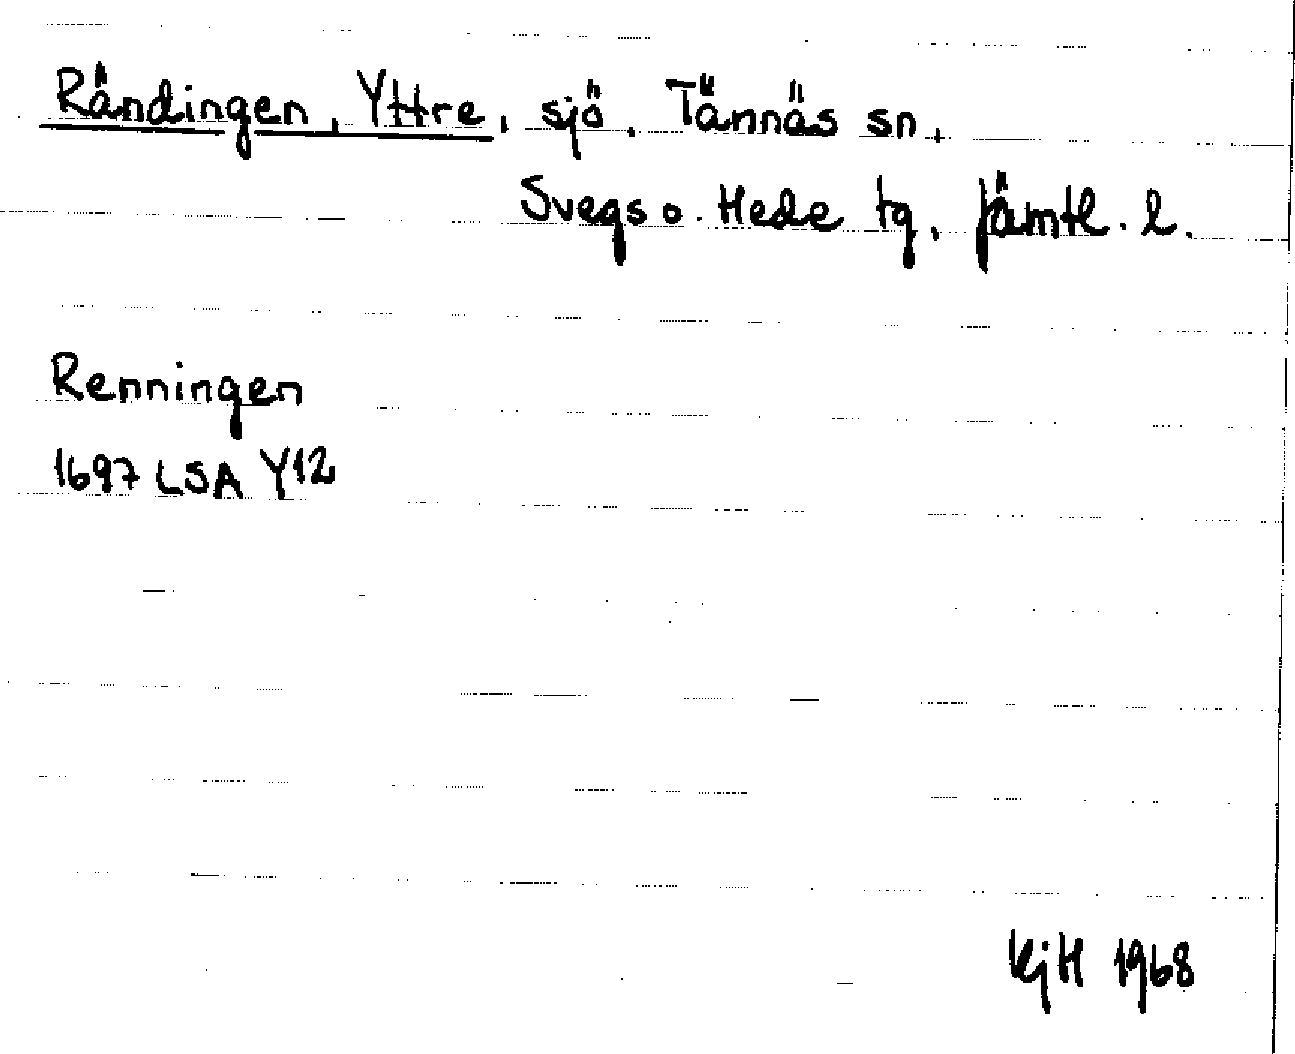 Rändingen, Yttre, sjö. Tännäs sn.
Svegs o. Hede tg. Jämtl. l.
Renningen
1697 LSA Y12
KjH 1968